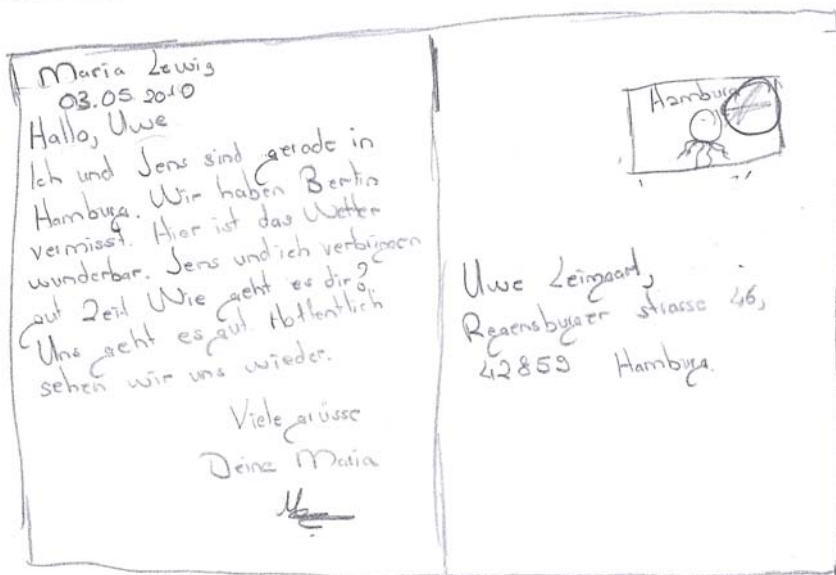 Maria Lewig
03.05.2010
Hallo, Uwe
Ich und Jens sind gerade in
Hamburg. Wir haben Berlin
vermisst. Hier ist das Wetter
wunderbar. Jens und ich verbringen
gut Zeit Wie geht es dir?
Uns geht es gut. Hoffentlich
sehen wir uns wieder.
Viele grüsse
Deine Maria
Hamburg
Uwe
Regensburger strasse 46,
42859 Hamburg.